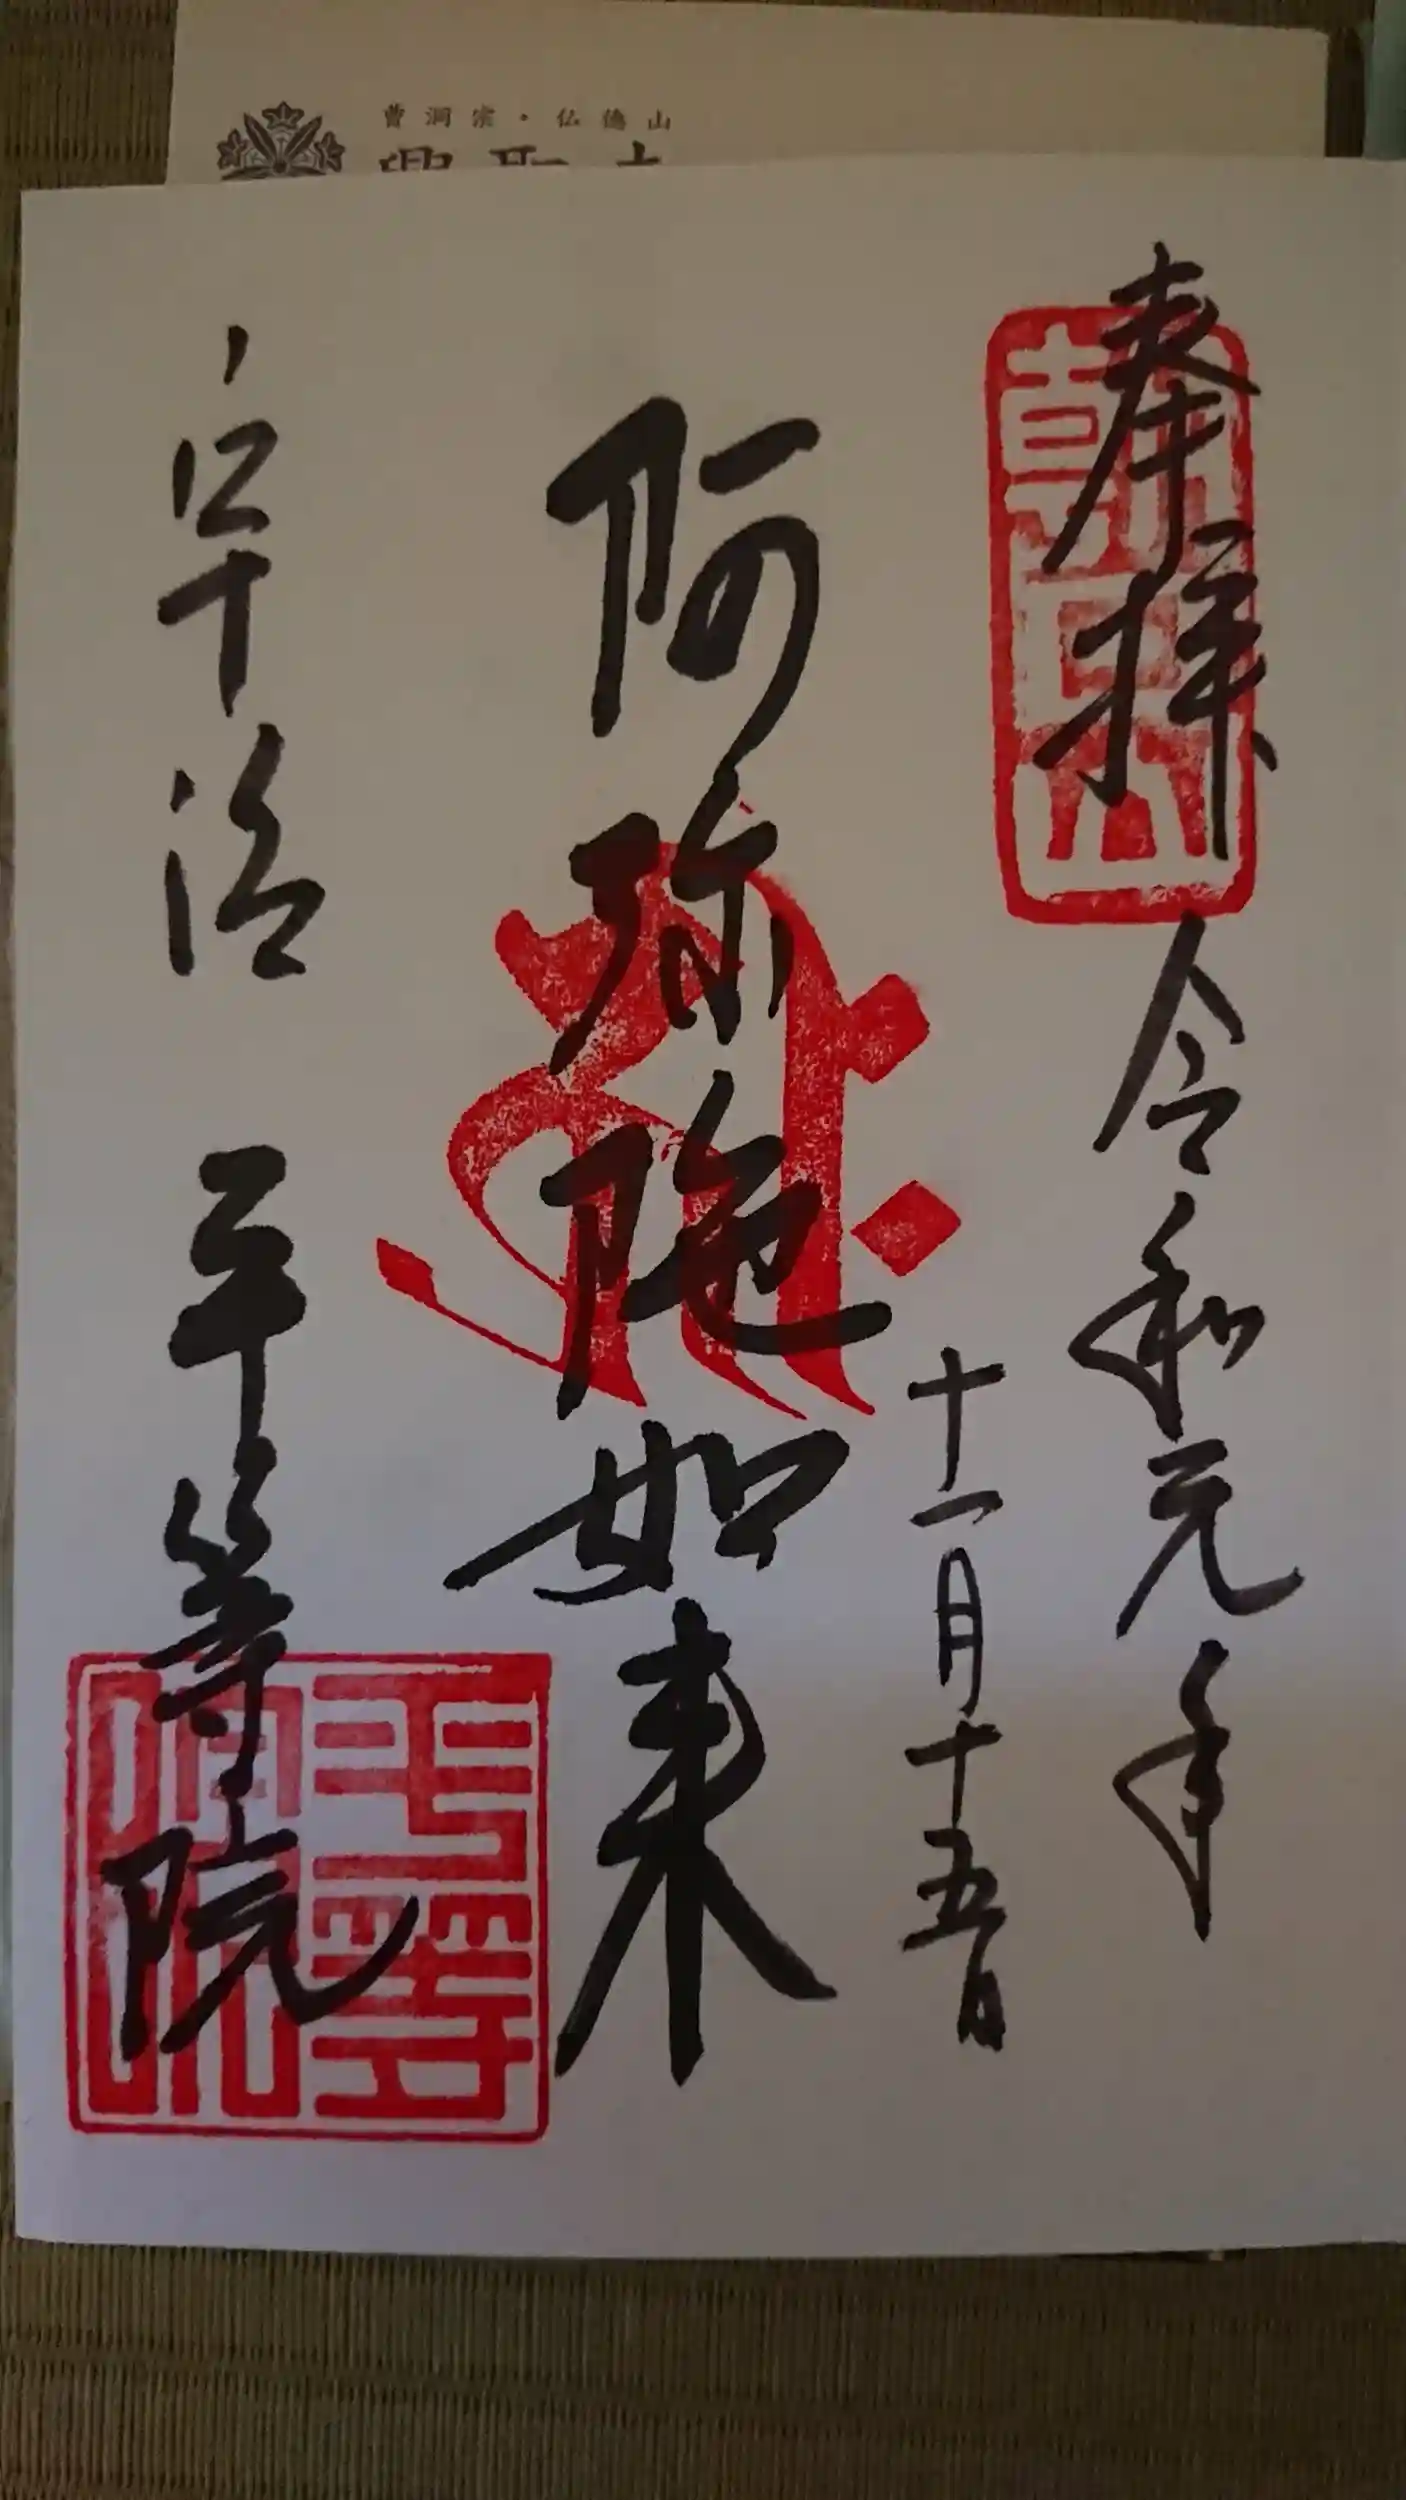 曹洞宗・仏徳山
奉拝
令和元年
十一月十五日
阿弥陁如来
宇治 平等院
平等院